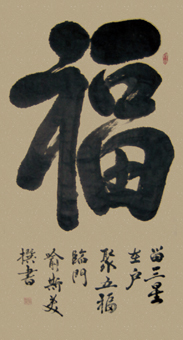 福
留三星
在户
聚五福
臨門
俞斯美
撰書